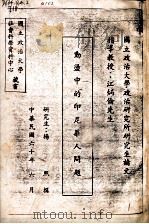 國立政治大學政治研究所研究生論文
指導教授：江炳倫先生
動盪中的印尼華人問題
研究生：楊 熙 撰
中華民國六十年 六 月
國立政治大學
社會科學資料中心
藏書